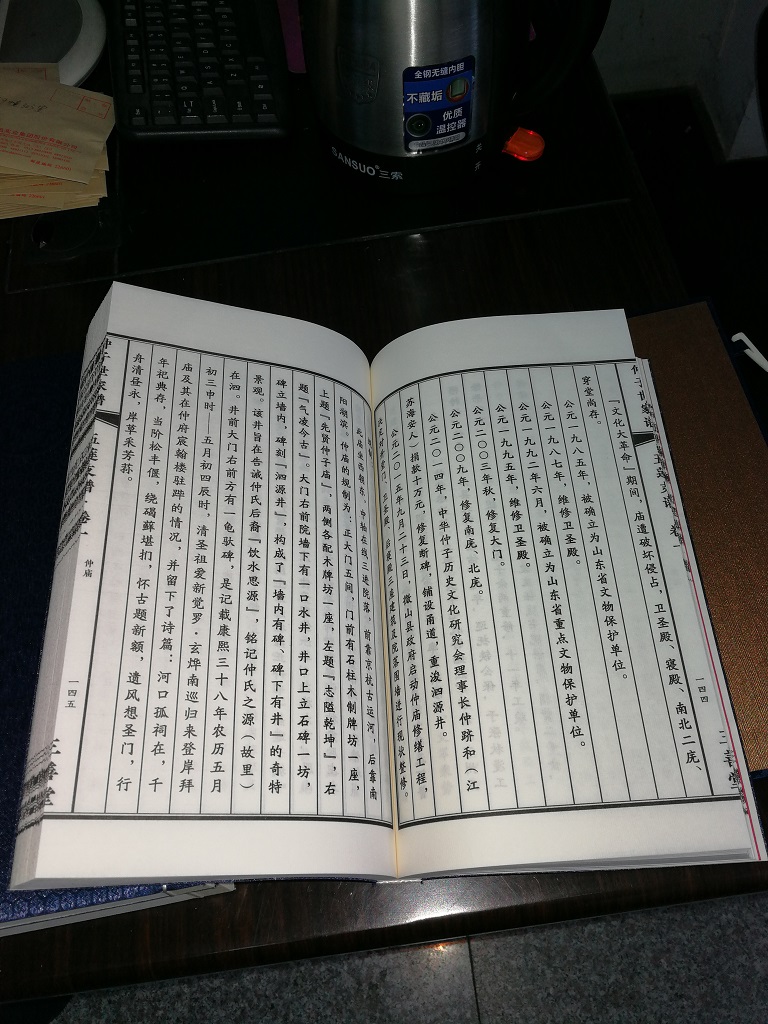 全钢无缝内胆
不藏垢
优质
温控器
SANSUO®三索
『文化大革命』期间，庙遭破坏侵占，卫圣殿、寝殿、南北二庑、
穿堂尚存。
公元一九八五年，被确立为山东省文物保护单位。
公元一九八七年，维修卫圣殿。
公元一九九二年六月，被确立为山东省重点文物保护单位。
公元一九九五年，维修卫圣殿。
公元二〇〇三年秋，修复大门。
公元二〇〇九年，修复南庑、北庑。
公元二〇一四年，中华仲子历史文化研究会理事长仲跻和（江
苏海安人）捐款十万元，修复断碑，铺设甬道，重浚泗源井。
公元二〇一五年九月二十三日，微山县政府启动仲庙修缮工程，
院落围墙进行现状整修。
一四四
三善堂
此庙坐西朝东，中轴在线三进院落，前靠京杭古运河，后靠南
阳湖滨。仲庙的规制为：正大门五间，门前有石柱木制牌坊一座，
上题『先贤仲子庙』，两侧各配木牌坊一座，左题『志隘乾坤』，右
题『气凌今古』。大门右前院墙下有一口水井，井口上立石碑一坊，
碑立墙内，碑刻『泗源井』，构成了『墙内有碑、碑下有井』的奇特
景观。该井旨在告诫仲氏后裔『饮水思源』，铭记仲氏之源（故里）
在泗。井前大门右前方有一龟驮碑，是记载康熙三十八年农历五月
初三申时——五月初四辰时，清圣祖爱新觉罗·玄烨南巡归来登岸拜
庙及其在仲府宸翰楼驻跸的情况，并留下了诗篇：河口孤祠在，千
年祀典存，当阶松丰偃，绕碣藓堪扪，怀古题新额，遗风想圣门，行
舟清昼永，岸草采芳荪。
仲子世家谱
五莲支谱·卷一
仲庙
一四五
三善堂